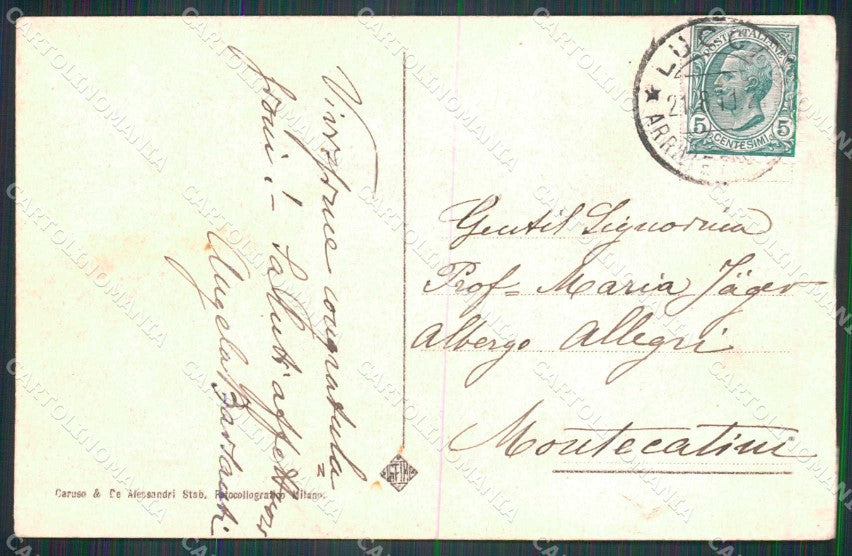 Vivissime congratula
zioni! - Saluti affettuosi
Angela
N
Caruso & De Alessandri Stab. Fotocollografico Milano.
LUCCA
ARRIVI E
POSTE ITALIANE
5 5
CENTESIMI
Gentil Signorina
Prof= Maria Jäger
Albergo Allegri
Montecatini
CARTOLINOMANIA